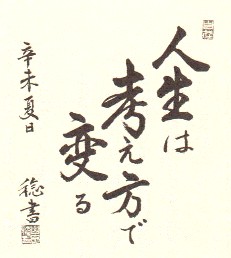 人生は
考え方で
変る
辛未夏日
稔書